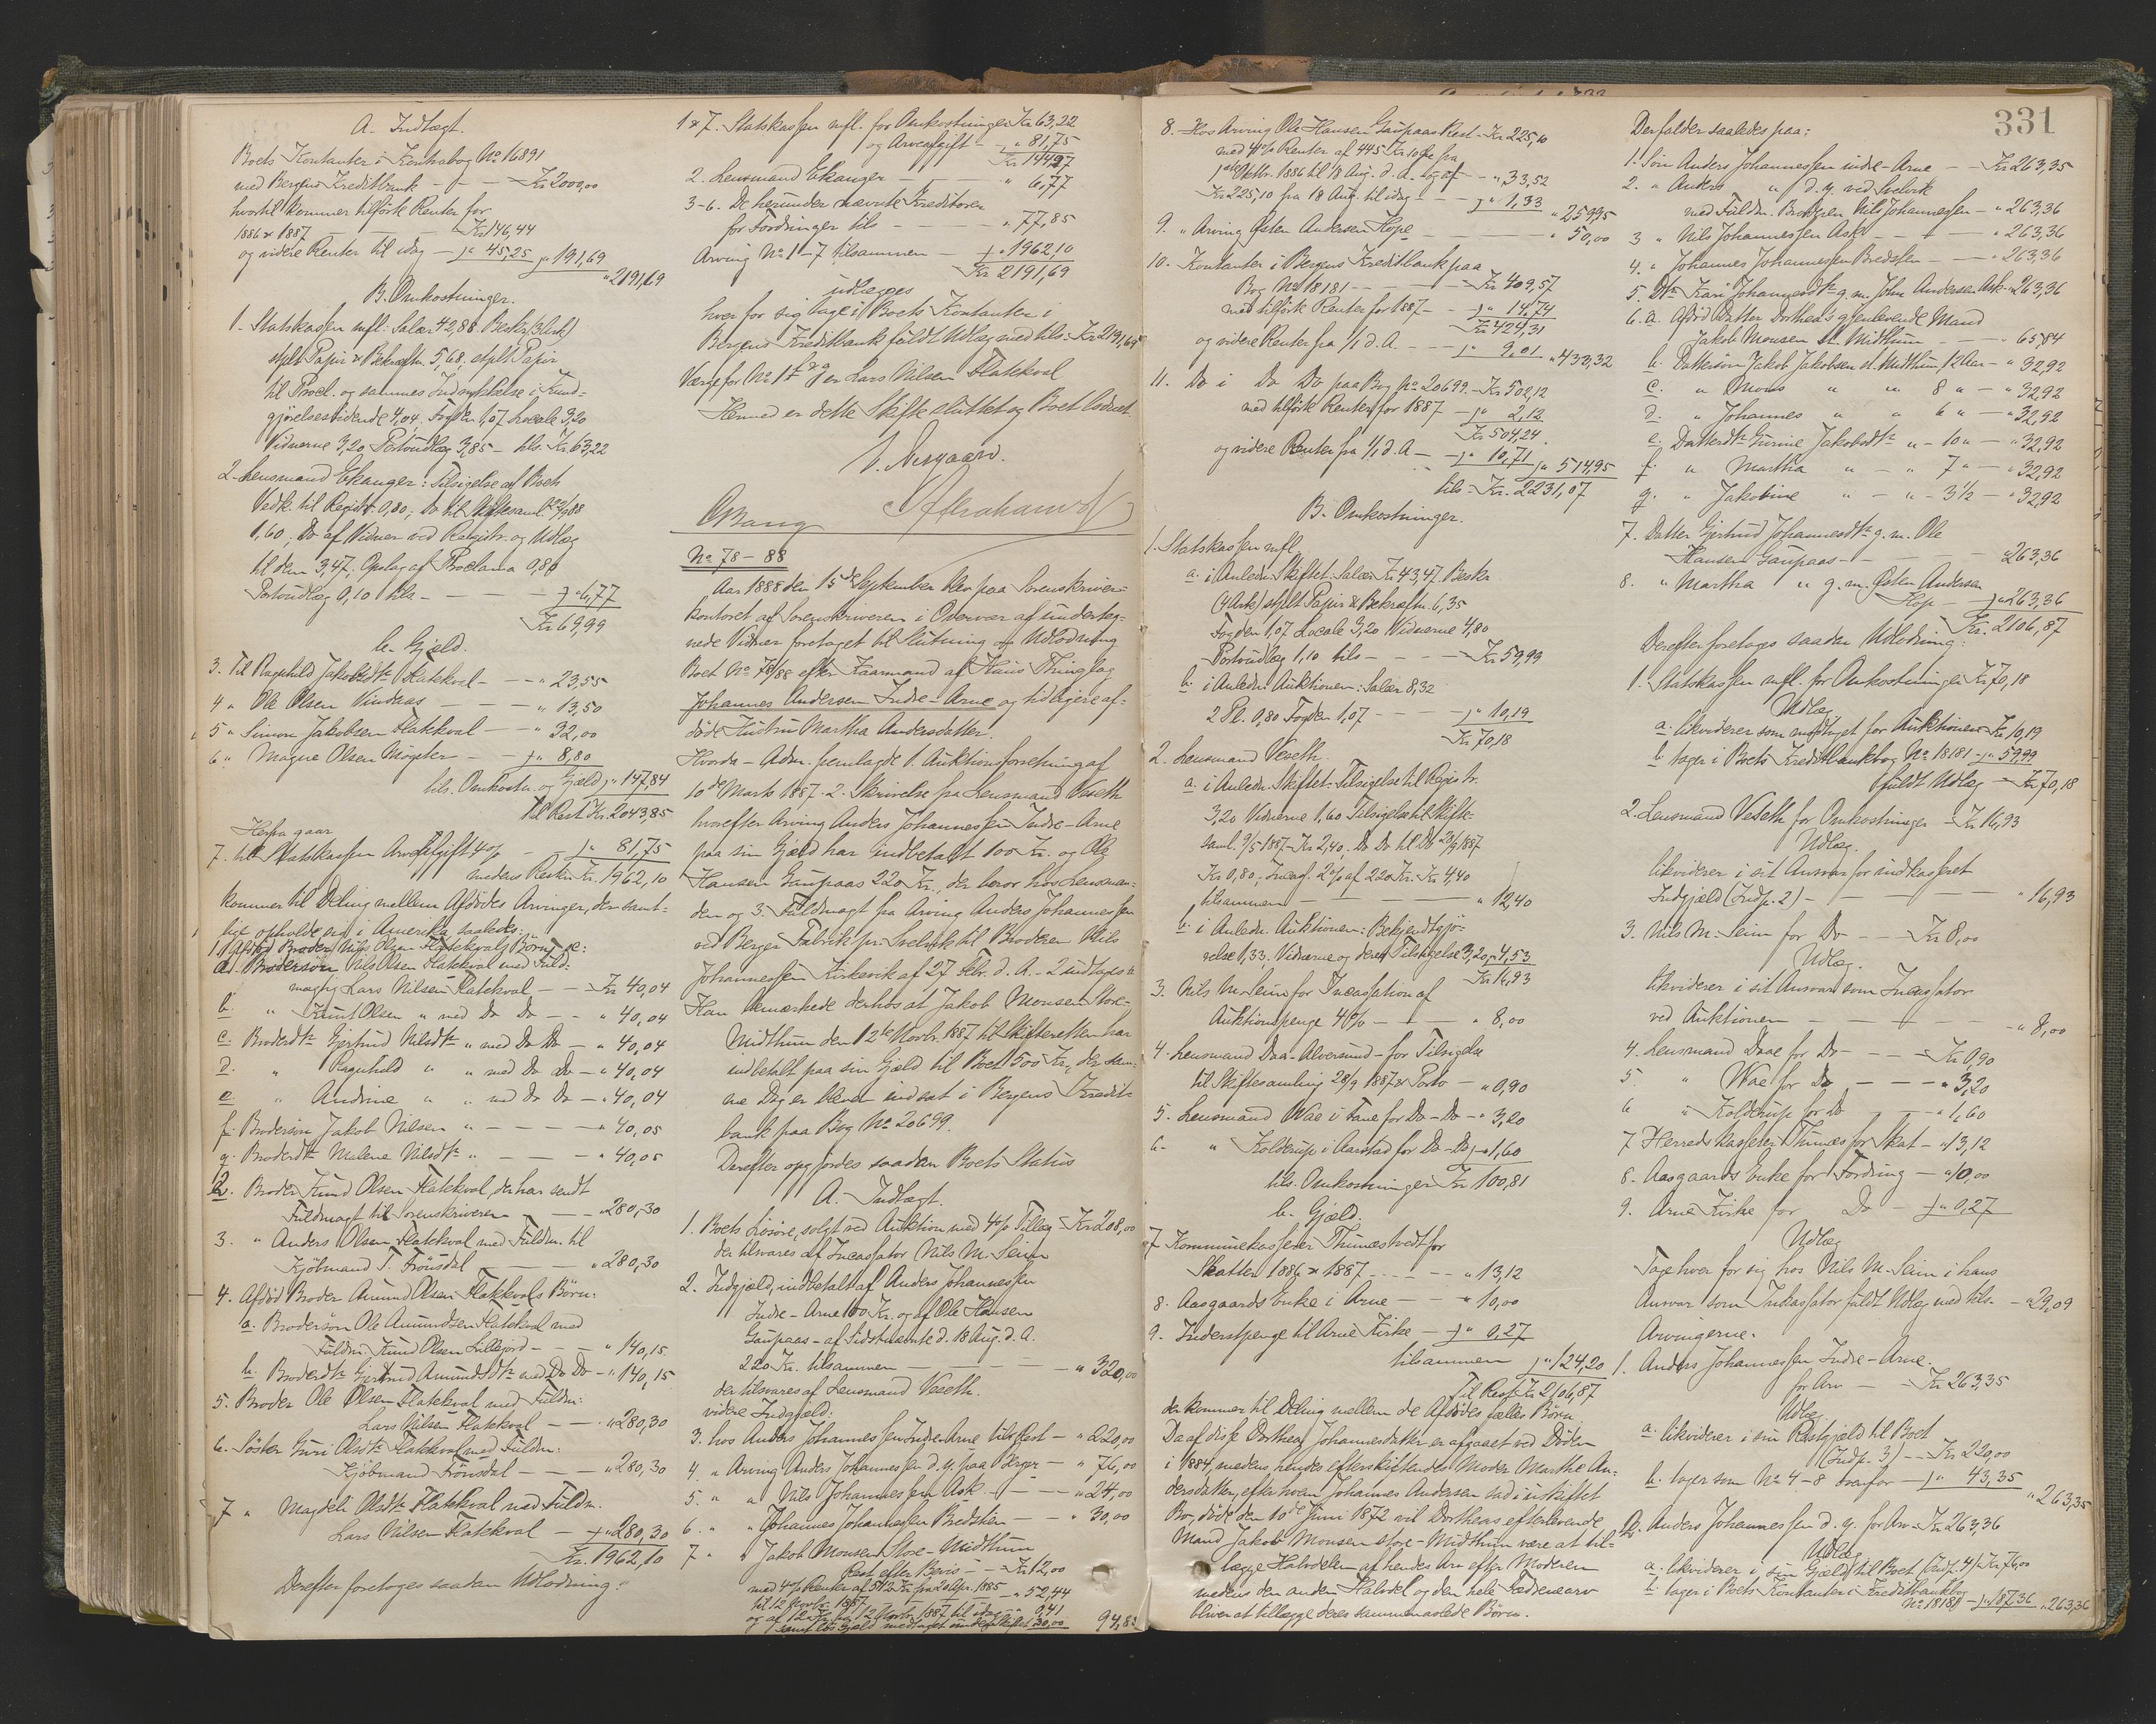 A. Indtægt.
Boets Kontanter i Kontrabog No 16891
med Bergens Kreditbank - - - Kr 2000,00
hvortil kommer tilførte Renter for
1886 & 1887 - - - Kr 146,44
og videre Renter til idag - " 45,25 " 191,69
" 2191,69
B. Omkostninger.
1. Statskassen mfl: Salær 42,88 Beskr (3 Ark)
stplt Papir & Bekræftn. 5,68, stplt Papir
til Procl. og sammes Indrykkelse i Kund-
gjørelsestidende 4,04. Fogden 1,07 Locale 3,20
Vidnerne 3,20 Portoudlæg 3,85 - tils. Kr. 63,22
2. Lensmand Ekanger: Tilsigelse af Boets
Vedk. til Registr. 0,80; Do til Skiftesaml.
1,60; Do af Vidner ved Registr. og Udlæg
til dem 3,47. Opslag af Proclama 0,80
Portoudlæg 0,10 tils - - - " 6,77
Kr 69,99
C. Gjæld.
3. Til Ragnhild Jakobsdtr Flatekval - - " 23,55
4 " Ole Olsen Vindaas - - - " 13,50
5 " Simon Jakobsen Flatekval - - " 32,00
6 " Magne Olsen Mögster - - " 8,80
tils. Omkostn. og Gjæld " 147,84
Til Rest Kr. 2043,85
Herfra gaar
7. til Statskassen Arveafgift 4% - " 81,75
medens Resten Kr. 1962,10
kommer til Deling mellem Afdødes Arvinger, der samt-
lige opholde sig i Amerika saaledes:
1. Afdød Broder Nils Olsen Flatekvals Børn:
a. Brodersön Nils Olsen Flatekval med Fuld-
mægtig Lars Nilsen Flatekval - - Kr 40,04
b. " Knut Olsen " med Do Do - - " 40,04
c. Broderdtr Gjertrud Nilsdtr " med Do Do - " 40,04
d. " Ragnhild " " med Do Do - " 40,04
e " Andrine " " med Do Do - " 40,04
f. Brodersön Jakob Nilsen " - - - " 40,05
g. Broderdtr Malene Nilsdtr " - - - " 40,05
2. Broder Knud Olsen Flatekval, der har sendt
Fuldmagt til Sorenskriveren - - " 280,30
3. " Anders Olsen Flatekval med Fuldm. til
Kjöbmand T. Frönsdal - - - " 280,30
4. Afdød Broder Amund Olsen Flatekvals Börn:
a. Brodersön Ole Amundsen Flatekval med
Fuldm. Knud Olsen Lillejord - - " 140,15
b. Broderdtr Gjertrud Amundsdtr med Do Do - " 140,15
5. Broder Ole Olsen Flatekval med Fuldm:
Lars Nilsen Flatekval - - " 280,30
6. Söster Guri Olsdtr Flatekval med Fuldm:
Kjöbmand Frönsdal - - - " 280,30
7 " Magdeli Olsdtr Flatekval med Fuldm.
Lars Nilsen Flatekval - " 280,30
Kr. 1962,10
Derefter foretoges saadan Udlodning:
1 & 7. Statskassen mfl. for Omkostninger Kr 63,22
og Arveafgift - " 81,75
Kr 144,97
2. Lensmand Ekanger - - - " 6,77
3-6. De herunder nævnte Kreditorer
for Fordringer tils - - - " 77,85
Arving No 1-7 tilsammen - " 1962,10
Kr 2191,69
udlægges
hver for sig tage i Boets Kontanter i
Bergens Kreditbank fuldt Udlæg med tils: Kr 2191,69
Værge for No 1 f & g er Lars Nilsen Flatekval
Hermed er dette Skifte sluttet og Boet lodnet.
No 78 - 88
Aar 1888 den 15de September blev paa Sorenskriver-
kontoret af Sorenskriveren i Overvær af underteg-
nede Vidner foretaget til Slutning og Udlodning
Boet No 78/88 efter Kaarmand af Haus Thinglag
Johannes Andersen Indre-Arne og tidligere af-
døde Hustru Martha Andersdatter.
Hvorda - Admr. fremlagde 1. Auktionsforretning af
10de Marts 1887. 2. Skrivelse fra Lensmand Veseth
hvorefter Arving Anders Johannessen Indre-Arne
paa sin Gjæld har indbetalt 100 Kr. og Ole
Hansen Gaupaas 220 Kr., der beror hos Lensman-
den og 3. Fuldmagt fra Arving Anders Johannessen
ved Berger Fabrik pr. Svelvik til Broderen Nils
Johannessen Kirkevik af 27 Febr. d. A. - 2 indtages
Han bemærkede derhos at Jakob Monsen Store-
Midthun den 12te Novbr. 1887 til Skifteretten har
indbetalt paa sin Gjæld til Boet 500 Kr., der sam-
me Dag er bleven indsat i Bergens Kredit-
bank paa Bog No 20699.
Derefter opgjordes saadan Boets Status
A. - Indtægt.
1. Boets Løsøre, solgt ved Auktion med 4% Tillæg - Kr 208,00
der tilsvares af Incassator Nils M. Seim
2. Indgjæld, indbetalt af Anders Johannessen
Indre-Arne 100 Kr. og af Ole Hansen
Gaupaas - af Sidstnævnte d. 18 Aug. d. A.
220 Kr. tilsammen - - - - " 320,00
der tilsvares af Lensmand Veseth.
videre Indgjæld:
3. hos Anders Johannessen Indre-Arne tils Rest - " 220,00
4. " Arving Anders Johannessen d. y. paa Berger - " 76,00
5. " " Nils Johannessen Ask - - - " 24,00
6. " " Johannes Johannessen Bredsten - - " 30,00
7 " " Jakob Monsen Store-Midthun
Rest efter Bevis - - Kr 12,00
med 4% Renter af 512 Kr fra 20 Apr. 1885
til 12 Novbr. 1887 - - " 52,44
og af 12 Kr fra 12 Novbr. 1887 til idag - " 0,41
samt løs Gjæld medtaget under Skiftet 30,00 94,85
331
8. Hos Arving Ole Hansen Gaupaas Rest - Kr 225,10
med 4% Renter af 445 Kr 10 Øre fra
1ste Oktbr. 1886 til 18 Aug. d. A. og af - " 33,52
Kr 225,10 fra 18 Aug. til idag - - " 1,33 " 259,95
9. " Arving Østen Andersen Hope - - - " 50,00
10. Kontanter i Bergens Kreditbank paa
Bog No 18181 - - - Kr 409,57
med tilførte Renter for 1887 - - " 14,74
Kr 424,31
og videre Renter fra 1/1 d. A. - - " 9,01 " 433,32
11. Do i Do Do paa Bog No 20699 - Kr 502,12
med tilførte Renter for 1887 - " 2,12
Kr 504,24.
og videre Renter fra 1/1 d. A - " 10,71 " 514,95
tils - Kr. 2231,07
B. Omkostninger.
1. Statskassen mfl.
a. i Anledn. Skiftet. Salær Kr 43,47 Beskr
(4 Ark) stplt Papir & Bekræftn. 6,35
Fogden 1,07 Locale 3,20 Vidnerne 4,80
Portoudlæg 1,10 tils - - - Kr 59,99
b. i Anledn. Auktionen: Salær 8,32
2 Pl. 0,80 Fogden 1,07 - - " 10,19
Kr 70,18
2. Lensmand Veseth.
a. i Anledn. Skiftet. Tilsigelse til Registr.
3,20 Vidnerne 1,60 Tilsigelse til Skifte-
saml. 9/5 1887 - Kr 2,40. Do Do til Do 28/9 1887
Kr 0,80; Incass. 2% af 220 Kr. - Kr 4,40
tilsammen - - - - " 12,40
b. i Anledn. Auktionen: Bekjendtgjö-
relse 1,33. Vidnerne og deres Tilsigelse 3,20 " 4,53
Kr 16,93
3. Nils M. Seim for Incassation af
Auktionspenge 4% - - - " 8,00
4. Lensmand Daa - Alversund - for Tilsigelse
til Skiftesamling 28/9 1887 & Porto - " 0,90
5. Lensmand Wae i Fane for Do - Do - " 3,20
6 - " Kolderup i Aarstad for Do - Do " 1,60
tils. Omkostninger Kr 100,81
C. Gjæld.
7 Kommunekasserer Thunestvedt for
Skatter 1886 & 1887 - - - " 13,12
8. Aasgaards Enke i Arne - - " 10,00
9. Inderstpenge til Arne Kirke - " 0,27
tilsammen " 124,20
Til Rest Kr 2106,87
der kommer til Deling mellem de Afdødes fælles Børn
Da af disse Dorthea Johannesdatter er afgaaet ved Døden
i 1884, medens hendes efterskiftende Moder Marthe An-
dersdatter, efter hvem Johannes Andersen sad i uskiftet
Bo, døde den 10de Juni 1872 vil Dortheas efterlevende
Mand Jakob Monsen store-Midthun være at til-
lægge Halvdelen af hendes Arv efter Moderen
medens den anden Halvdel og den hele Fædrenearv
bliver at tillægge deres sammenavlede Børn.
Der falder saaledes paa:
1. Sön Anders Johannessen indre-Arne - - Kr 263,35
2. " Anders " d. y. ved Svelvik
med Fuldm. Broderen Nils Johannessen - " 263,36
3 " Nils Johannessen Ask - - - " 263,36
4. " Johannes Johannessen Bredsten - - " 263,36
5. Dtr Kari Johannesdtr g. m. John Andersen Ask - " 263,36
6. a. Afdød Datter Dorthea's gjenlevende Mand
Jakob Monsen St. Midthun - - " 65,84
b. Dattersön Jakob Jakobsen st. Midthun 12 Aar - " 32,92
c. " Mons " " 8 " - " 32,92
d. " Johannes " " 6 " - " 32,92
e. Datterdtr Gurine Jakobsdtr " - 10 " - " 32,92
f. " Martha " - " 7 " - " 32,92
g. " Jakobine " - " - 3½ - " 32,92
7. Datter Gjertrud Johannesdtr g. m. Ole
Hansen Gaupaas - - - " 263,36
8. " Martha " g. m. Østen Andersen
Hop - " 263,36
Kr. 2106,87
Derefter foretoges saadan Udlodning:
1. Statskassen mfl. for Omkostninger Kr 70,18
Udlæg
a. likviderer som modtaget for Auktionen Kr 10,19
b. tager i Boets Kreditbankbog No 18181 - " 59,99
fuldt Udlæg - Kr 70,18
2. Lensmand Veseth for Omkostninger - Kr 16,93
Udlæg.
likviderer i sit Ansvar for indkasseret
Indgjæld (Indp. 2) - - - " 16,93
3. Nils M. Seim for Do - - Kr 8,00
Udlæg.
likviderer i sit Ansvar som Incassator
ved Auktionen - - - - " 8,00
4. Lensmand Daae for Do - - - Kr 0,90
5. " Wae for Do - - - " 3,20
6 " Kolderup for Do - - " 1,60
7. Herredskasserer Thunæs for Skat - " 13,12
8. Aasgaards Enke for Fordring - " 10,00
9. Arne Kirke for Do - " 0,27
Udlæg
Tage hver for sig hos Nils M. Seim i hans
Ansvar som Inkassator fuldt Udlæg med tils. - " 29,09
Arvingerne.
1. Anders Johannessen Indre-Arne.
for Arv - - Kr 263,35
Udlæg
a. likviderer i sin Restgjæld til Boet
(Indp. 3) - - Kr 220,00
b. tager som No 4-8 ovenfor - " 43,35
" 263,35
2. Anders Johannessen d. y. for Arv - Kr 263,36
Udlæg
a. likviderer i sin Gjæld til Boet (Indp. 4) - Kr 76,00
b. tager i Boets Kontanter i Kreditbankbog
No 18181 - " 187,36 " 263,36